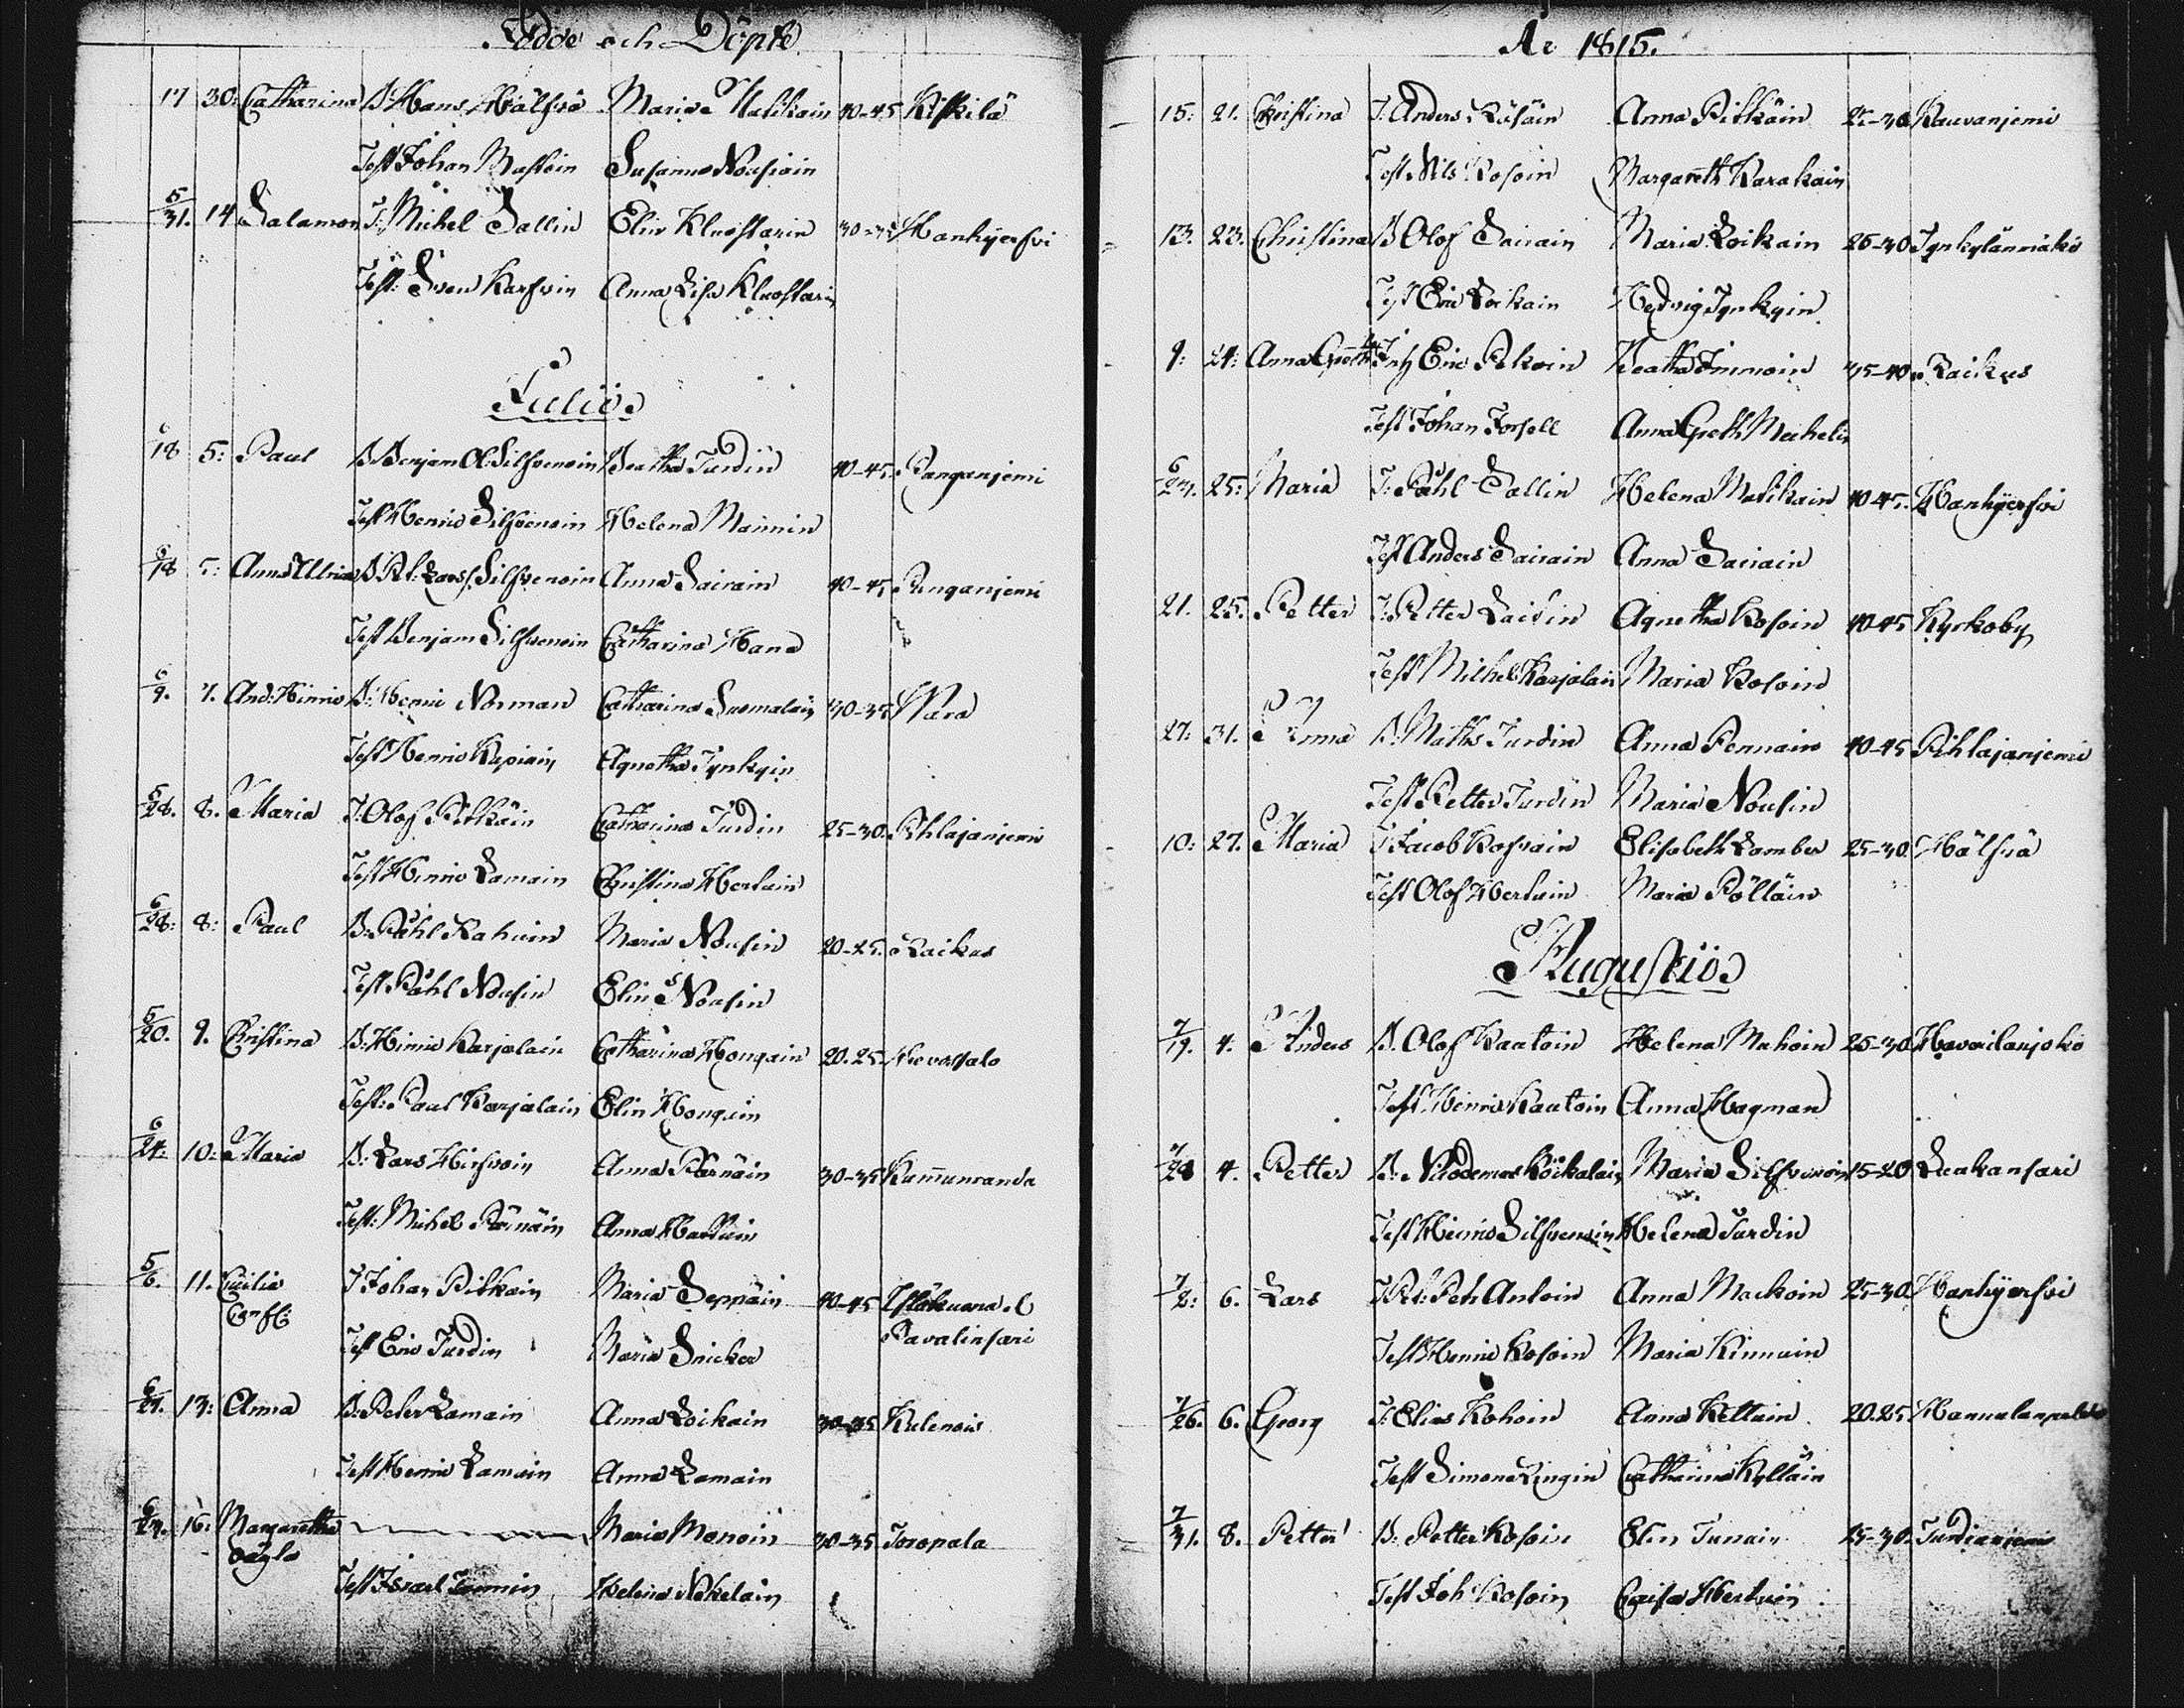 Födde och Döpte
17 30: Catharina B. Hans Hälfvä Maria Matikain 40-45 Kiskilä
Test Johan Mustoin Susanna Nousiain
5/31. 14 Salamon T: Michel Sallin Elin Kluostarin 30-35 Hankijerfvi
Test: Sven Karfvin Anna Lisa Kluostarin
Julius
6/18 5: Paul B. Benjam Ol: Silfvenoin Beatha Turdin 40-45. Panganjemi
Test Henric Silfvenoin Helena Mainin
6/18 5: Anna Ulrica B. Pet: Larss: Silfvenoin Anna Sairain 40-45 Panganjemi
Test Benjam Silfvenoin Catharina Hana
6/9. 7. And: Hinric B: Henric Norman Catharina Suomalain 30-35 Wara
Test Henric Kapiain Agnetha Tynkyin
5/28. 8. Maria T. Olof Pitkäin Catharina Turdin 25-30. Pihlajanjemi
Test Hinric Lamain Christina Hertuin
6/28: 8: Paul B: Påhl Kahuin Maria Nousin 20-25. Raikus
Test Påhl Nousin Elin Nousin
5/20. 9. Christina B: Hinric Karjalain Catharina Hongain 20.25 Hirvosalo
Test: Paul Karjalain Elin Hongain
6/24: 10: Maria B: Lars Hirfvoin Anna Pärnäin 30-35 Kumunranda
Test: Michel Pärnäin Anna Hartuin
5/6. 11. Cecilia T Johan Pitkäin Maria Seppäin 40-45
Conf: Pavalinsari
Test Eric Turdin Maria Snicker
6/21. 13: Anna B: Peter Lamain Anna Loikain 30-35 Kulenois
Test Henric Lamain Anna Lamain
6/23. 16: Margaretha Maria Monoin 30-35 Toropala
oägta
Test Israel Helena Nikelain
År 1815.
15: 21. Christina T: Anders Räisäin Anna Pitkäin 25-30 Rauvanjemi
Test Nils Kosoin Margareth Karakain
13. 23. Christina B Olof Sairain Maria Loikain 25-30 Tynkylänmäki
Test Eric Loikain Hedvig Tynkyin
9: 24: Anna Greth Inh Eric Pekoin Beatha Immoin 35-40 Raikus
Test Johan Forsell Anna Greth Mechelin
6/23. 25: Maria T: Påhl Sallin Helena Matikain 40-45. Hankijerfvi
Test Anders Sairain Anna Sairain
21. 25. Petter T: Petter Laitin Agnetha Kosoin 40-45 Kyrkoby
Test Michel Karjalain Maria Kosoin
27: 31. Anna B: Maths Turdin Anna Pennain 40-45 Pihlajanjemi
Test Petter Turdin Maria Nousin
10: 27. Maria T Jacob Kosvain Elisabeth Lamber 25-30. Hälfvä
Test Olof Hertuin Maria Pölläin
Augustus
7/19. 4. Anders B. Olof Kaatoin Helena Muhoin 25-30 Haverilanjoki
Test Hinric Kaatoin Anna Hagman
7/28 4. Petter B: Nikodemus Köikalain Maria Silfvenoin 15-20 Leakansari
Test Hinric Silfvenoin Helena Turdin
7/2: 6. Lars T Pet: Peh Antoin Anna Mackoin 25-30. Hankijerfvi
Test Henric Kosoin Maria Kinnuin
7/26. 6. Georg T: Elias Kohoin Anna Keltain 20.25
Test Simon Zingin Catharina Kylläin
7/31. 8. Petter B: Petter Kosoin Elin Tunain 25-30. Turdianjemi
Test Joh Kosoin Caisa Hertuin